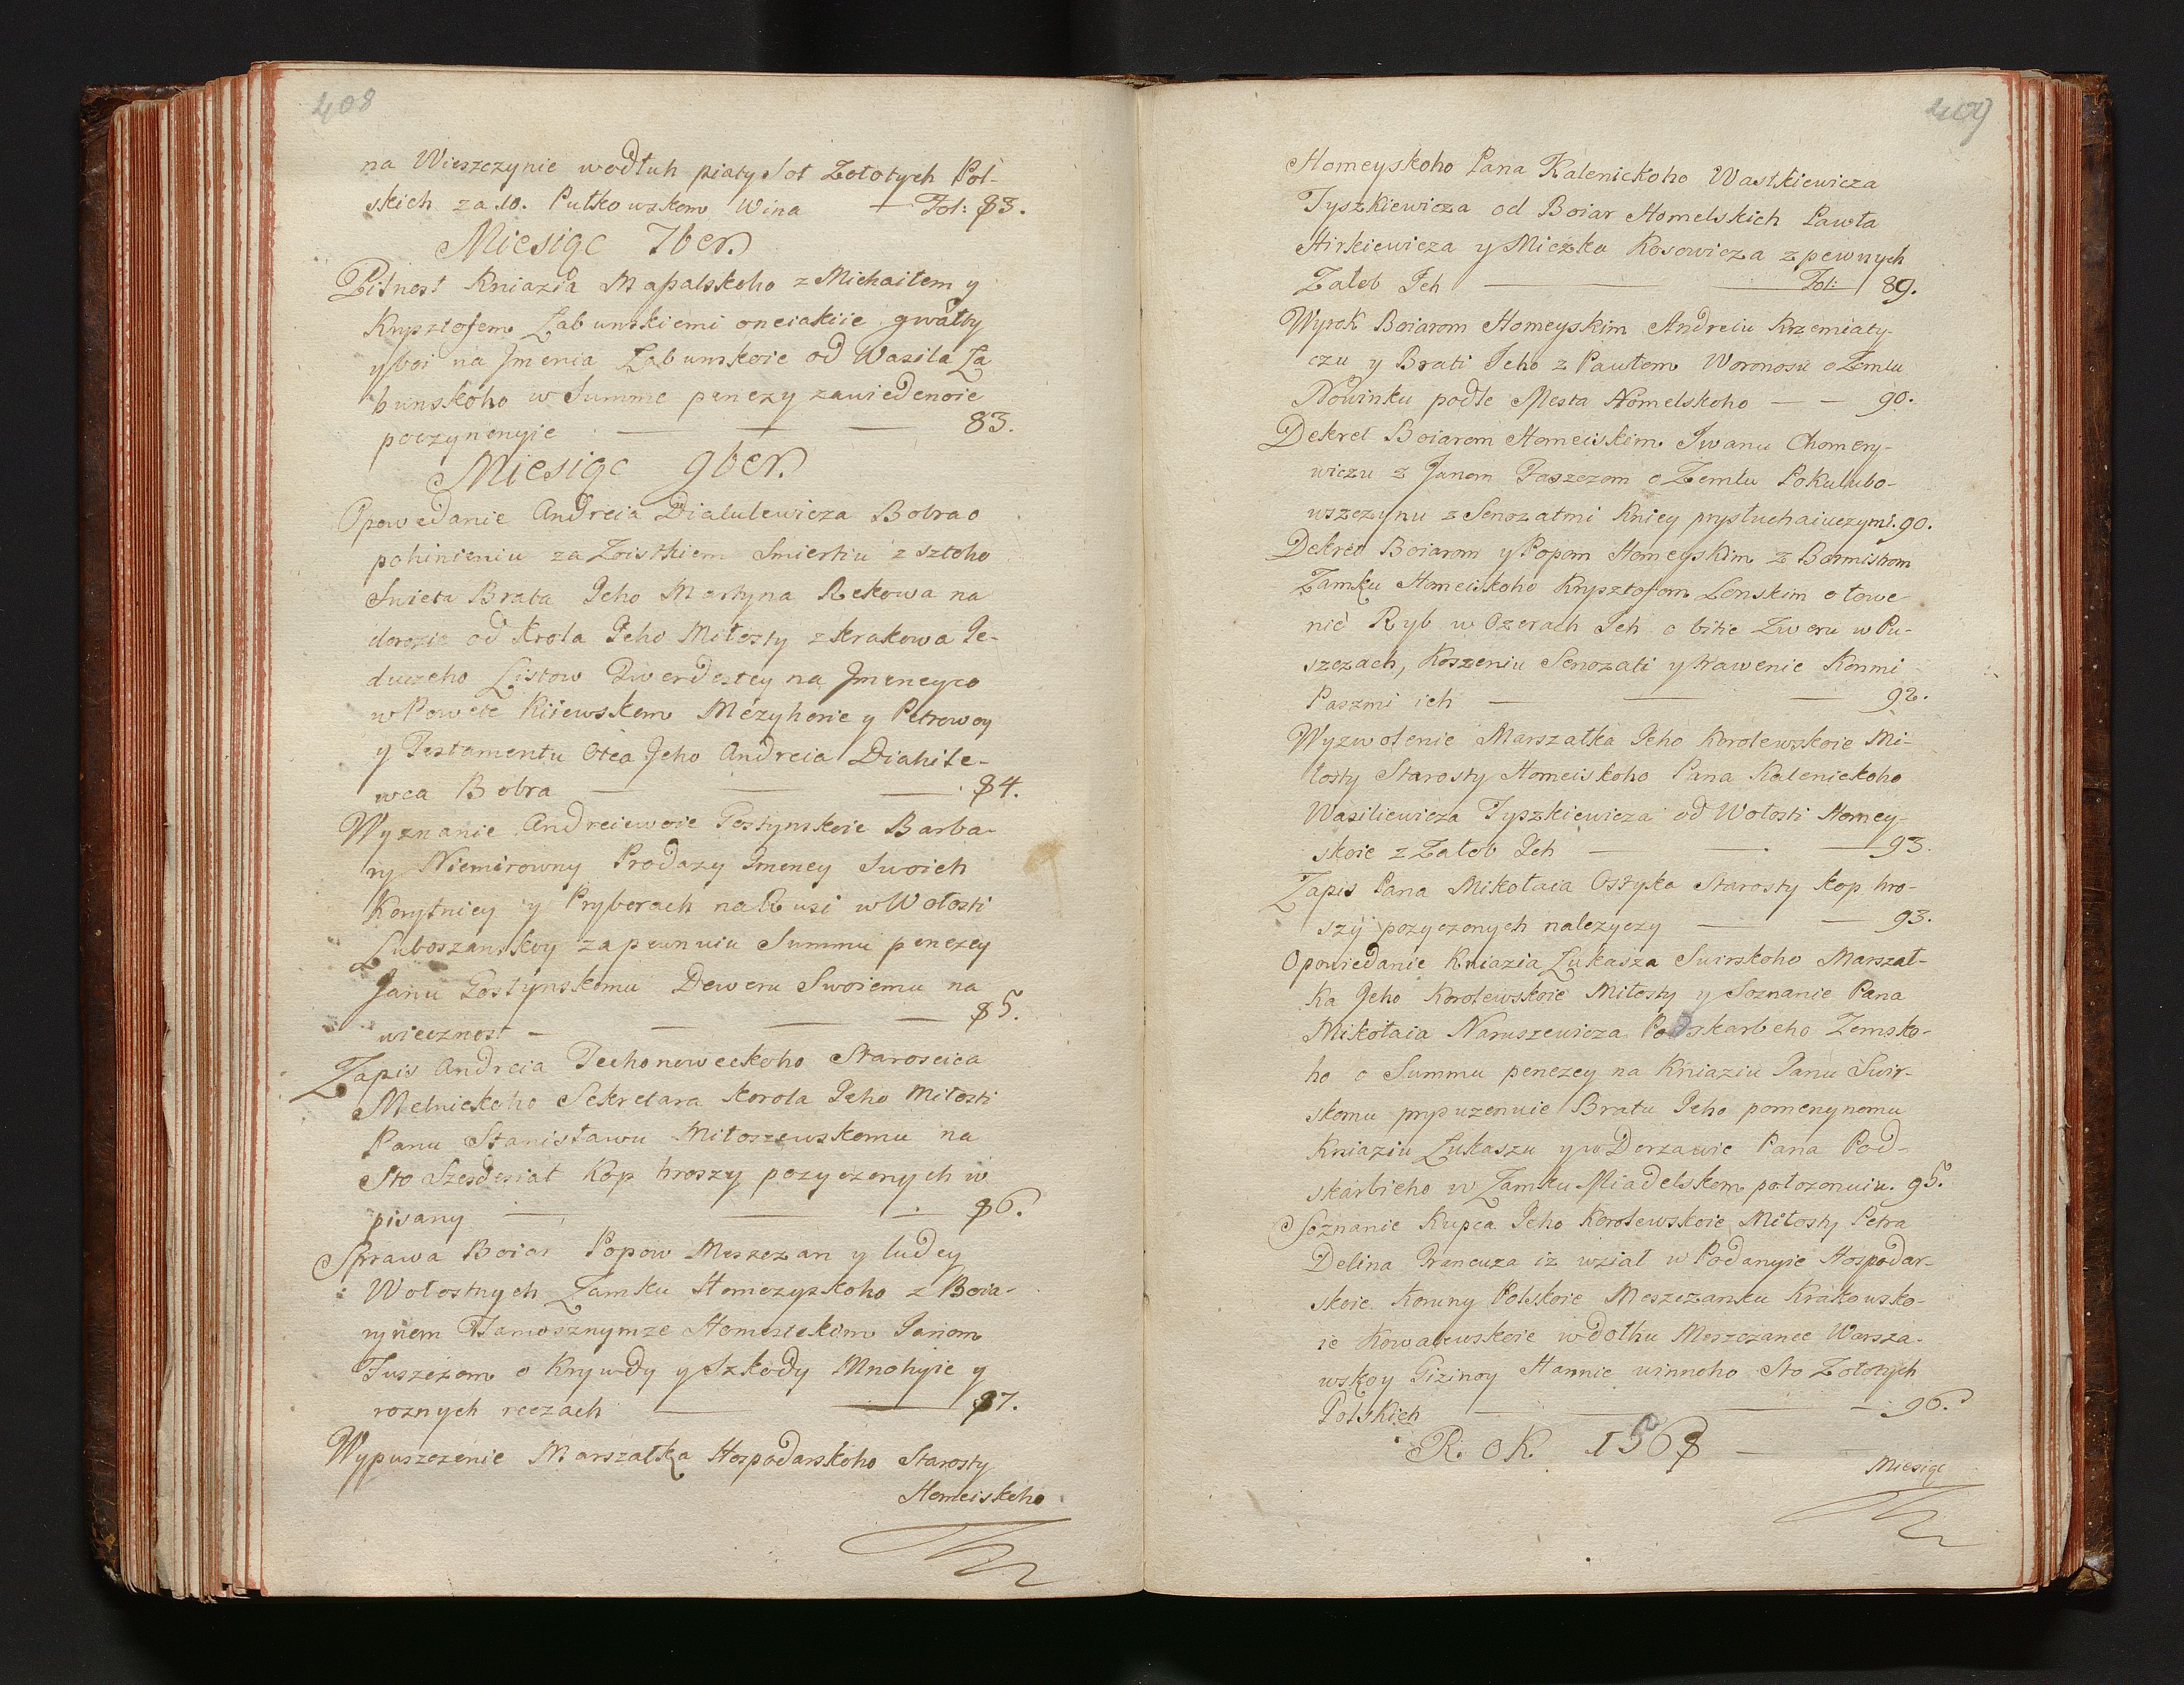 408
na Wieszczynie wodłuh piaty Sot Zołotych Pol-
skich za 10. Pułkowskom Wina — Fol: 83.
Miesiąc 7ber.
Pilnost Kniazia Mapalskoho z Michaiłem y
Krysztofem Łabunskiemi oneiakiie gwałty
y boi na Jmenia Łabunskoie od Wasila Ła
bunskoho w Summie penezy zawiedenoie
poczynenyie — — — 83.
Miesiąc 9ber.
Opowedanie Andreia Dialulewicza Bobra o
pohinieniu za Zoistkiem Smiertiu z sztoho
Swieta Brata Jeho Martyna Rekowa na
dorozie od Krola Jeho Miłosty z Krakowa Je-
duczeho Listow Twerdostey na Jmeneyco
w Powete Kiiewskom Mezyherie y Petrowoy
y Testamentu Otca Jeho Andreia Diahile-
wca Bobra — — — 84.
Wyznanie Andreiewoie Gostynskoie Barba-
ry Niemirowny Prodazy Jmeney Swoich
Korytnicy y Pryborach na Rusi w Wołosti
Luboszanskoy za pewnuiu Summu penezey
Janu Gostynskomu Deweru Swoiemu na
wiecznost — — — — 85.
Zapis Andreia Techonoweckoho Staroscica
Melnickoho Sekretara Korola Jeho Miłosti
Panu Stanisławu Miłoszewskomu na
Sto Szesdesiat Kop hroszy pozyczonych w
pisany — — — 86.
Sprawa Boiar Popow Meszczan y ludey
Wołostnych Zamku Homezyskoho z Boia-
rynem Tamosznymze Homeickim Janom
Fuszczom o Krywdy y Szkody Mnohyie y
roznych reczach — — 87.
Wypuszczenie Marszałka Hospodarskoho Starosty
Homeiskoho
409
Homeyskoho Pana Kalenickoho Wastkiewicza
Tyszkiewicza od Boiar Homelskich Pawła
Hirkiewicza y Mieżka Kosowicza z pewnych
Załob Jch — — Fol: 89.
Wyrok Boiarom Homeyskim Andreiu Krzemiaty-
czu y Brati Jeho z Pawłom Woronosu o Zemlu
Nowinku podle Mesta Homelskoho — — 90.
Dekret Boiarom Homeiskim Jwanu Chomeny-
wiczu z Janom Faszczom o Zemlu Pokulubo-
uszczynu z Senozatmi Kniey prysłuchaiuczymi. 90.
Dekret Boiarom y Popom Homeyskim z Bormistrom
Zamku Homeiskoho Krysztofom Lonskim o łowe-
nie Ryb w Ozerach Jch o bitie Zweru w Pu-
szczach, Koszeniu Senozati y Trawenie Konmi
Paszmi ich — — — 92.
Wyzwolenie Marszałka Jeho Korolewskoie Mi-
łosty Starosty Homeiskoho Pana Kalenickoho
Wasiliewicza Tyszkiewicza od Wołosti Homey-
skoie z Załob Jch — — — 93.
Zapis Pana Mikołaia Ostyka Starosty kop hro-
szy pozyczonych nalezyczy — — 93.
Opowiedanie Kniazia Łukasza Swirskoho Marszał-
ka Jeho Korolewskoie Miłosty y Soznanie Pana
Mikołaia Naruszewicza Podskarbeho Zemsko-
ho o Summu penezey na Kniaziu Janu Swir-
skomu prypuzenuie Bratu Jeho pomenynomu
Kniaziu Łukaszu y w Derzawie Pana Pod-
skarbieho w Zamku Miadelskom połozonuiu. 95.
Soznanie Kupca Jeho Korolewskoie Miłosty Petra
Delina Francuza iz wział w Podanyie Hospodar-
skoie Koruny Polskoie Meszczanku Krakowsko-
ie Kowalewskoie w dołhu Meszczance Warsza-
wskoy Gizinoy Hannie winnoho Sto Zołotych
Polskich — — — 96.
ROK 1568 —
Miesiąc